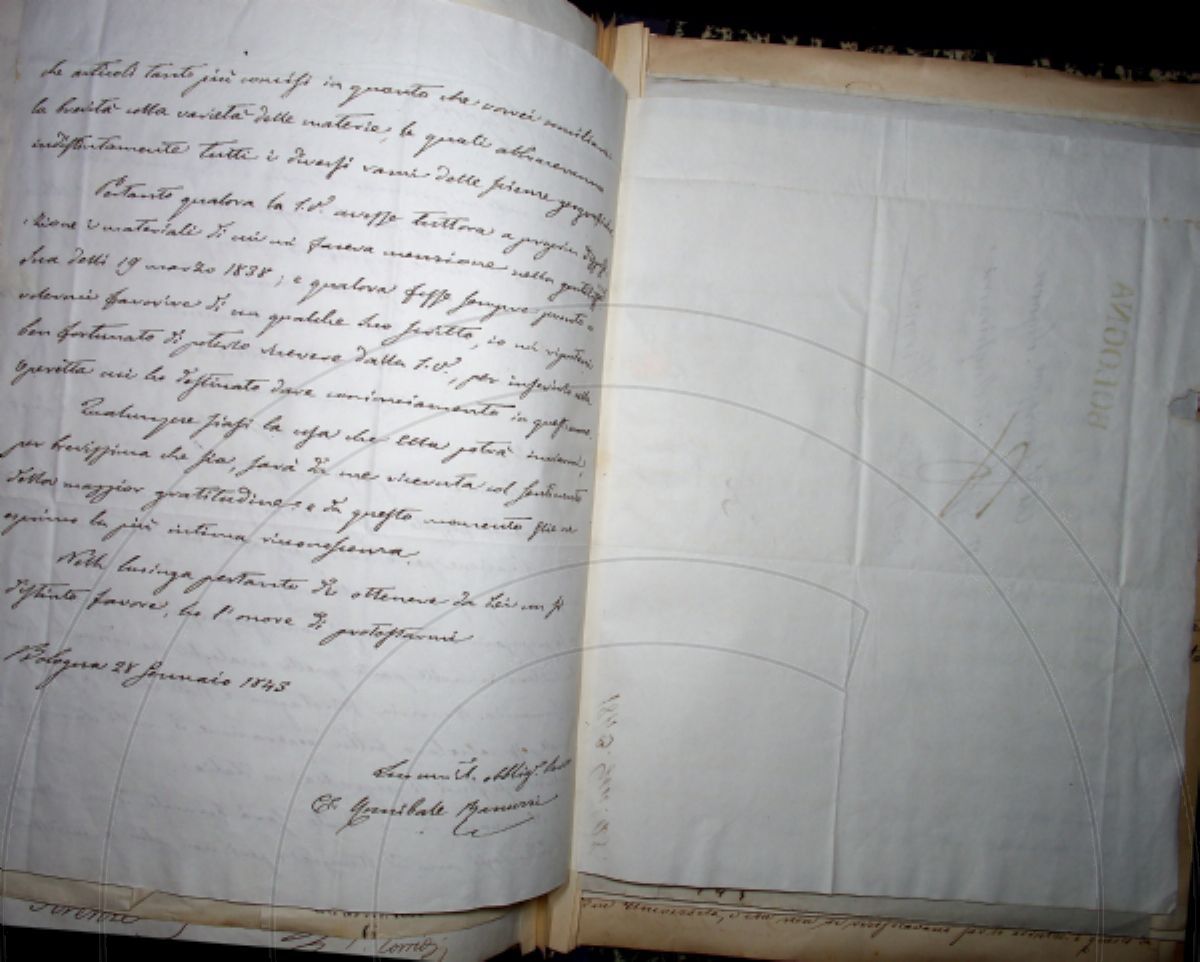 che articoli tanto più concisi in quanto che vorrei conciliare
la brevità colla varietà delle materie, le quali abbracceranno
indistintamente tutti i diversi rami delle scienze geografiche.
Pertanto qualora la S.V. avesse tuttora a propria disposi-
zione i materiali di cui mi faceva menzione nella gentilissima
sua delli 19 marzo 1838; e qualora fosse sempre pronto a
volermi favorire di un qualche suo scritto, io mi riputerei
ben fortunato di poterlo ricevere dalla S.V., per inserirlo nella
operetta cui ho destinato dare cominciamento in quest'anno.
Qualunque siasi la cosa che Ella potrà inviarmi,
per brevissima che sia, sarà da me ricevuta col sentimento
della maggior gratitudine: e da questo momento gliene
esprimo la più intima riconoscenza.
Nella lusinga pertanto di ottenere da Lei un sì
distinto favore, ho l'onore di protestarmi
Bologna 28 Gennaio 1843
Annibale Ranuzzi
BOLOGNA
Firenze